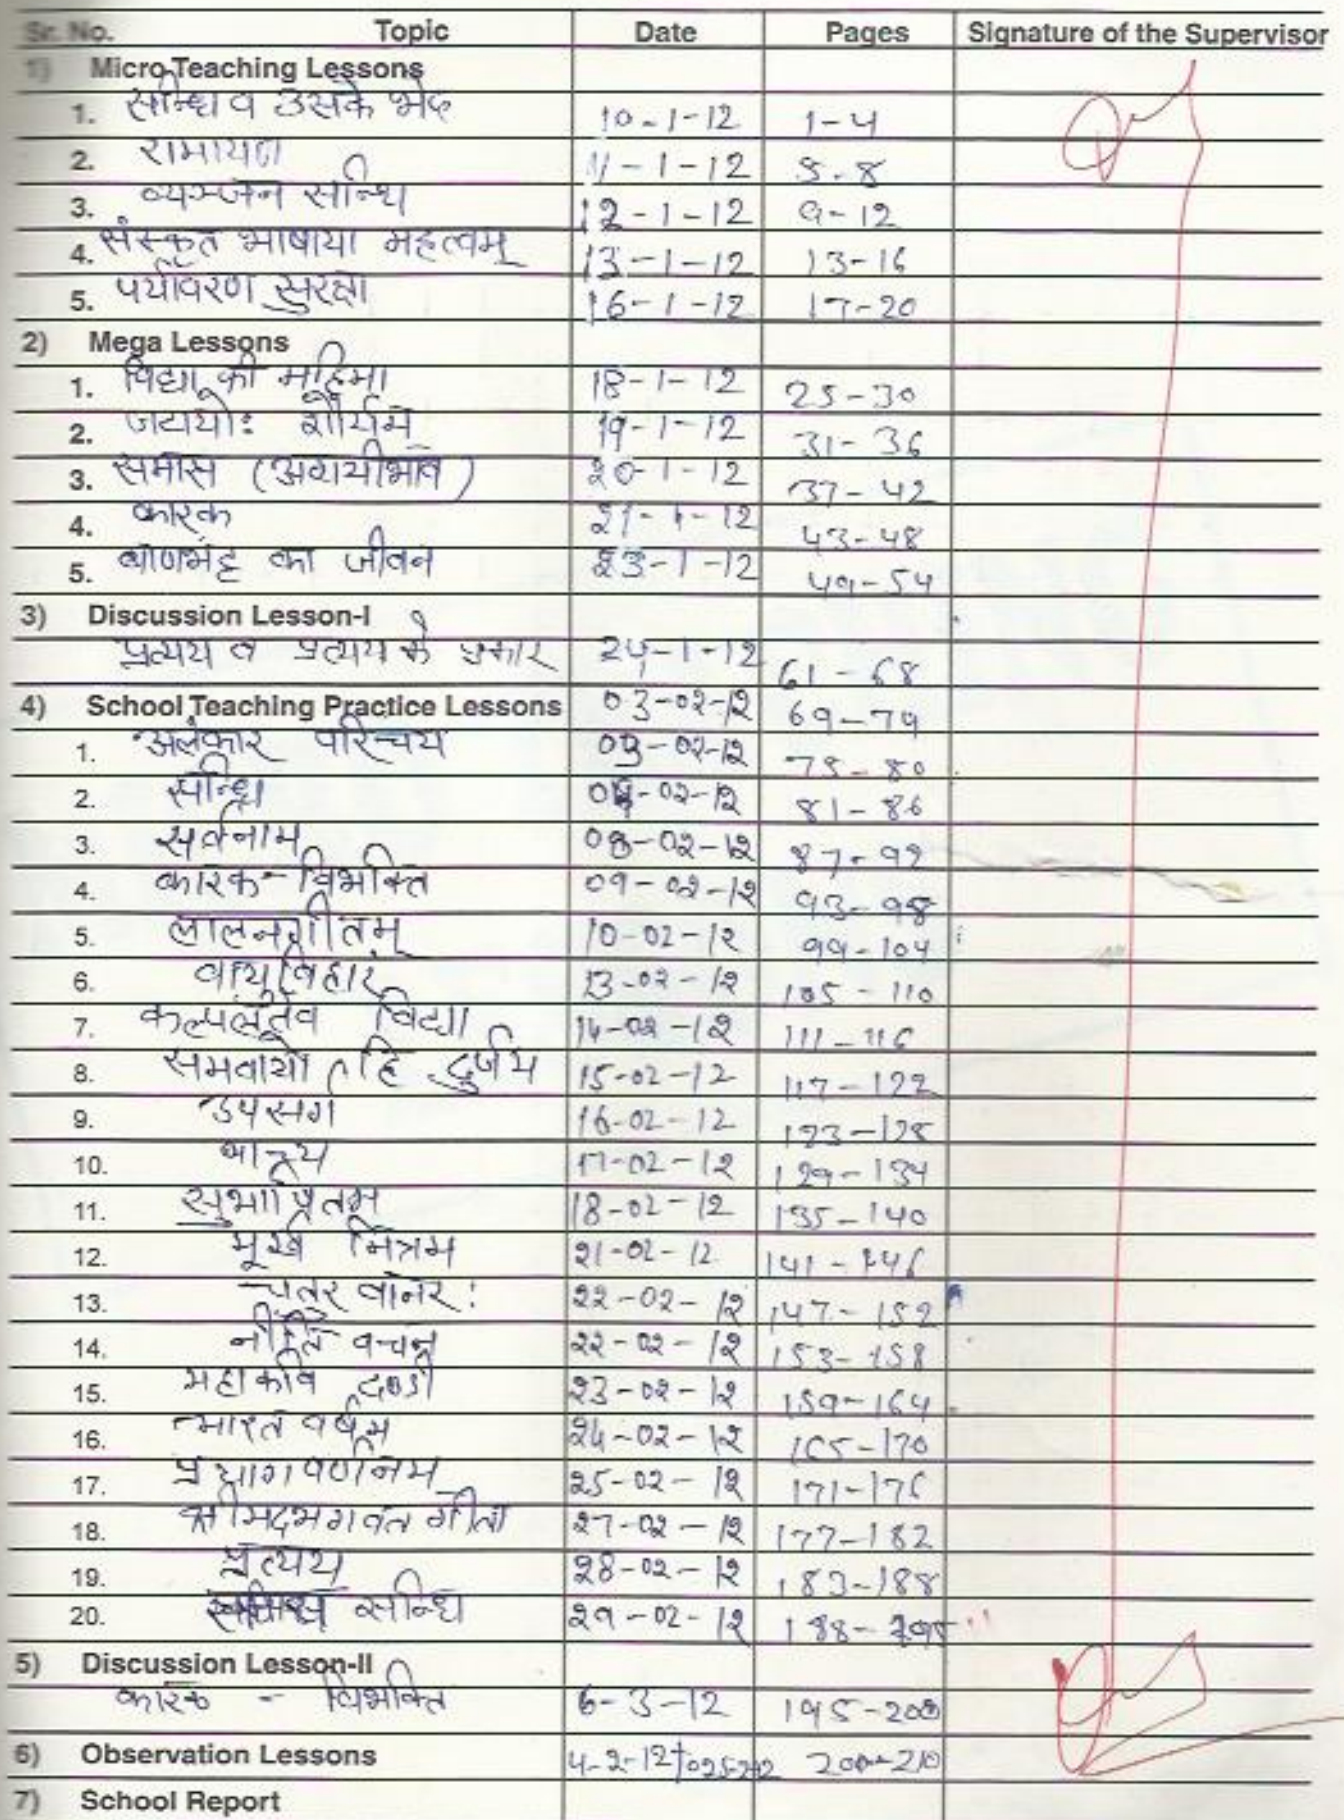 Sr. No. Topic Date Pages Signature of the Supervisor
1) Micro Teaching Lessons
1. सन्धि व उसके भेद 10-1-12 1-4
2. रामायण 11-1-12 5-8
3. व्यञ्जन सन्धि 12-1-12 9-12
4. संस्कृत भाषाया महत्वम् 13-1-12 13-16
5. पर्यावरण सुरक्षा 16-1-12 17-20
2) Mega Lessons
1. विद्या की महिमा 18-1-12 25-30
2. शौर्यम 19-1-12 31-36
3. समास (अव्ययीभाव) 20-1-12 37-42
4. कारक 21-1-12 43-48
5. बाणभट्ट का जीवन 23-1-12 49-54
3) Discussion Lesson-I
प्रत्यय व प्रत्यय के प्रकार 24-1-12 61-68
4) School Teaching Practice Lessons 03-02-12 69-74
1. अलंकार परिचय 03-02-12 75-80
2. सन्धि 02-12 81-86
3. सर्वनाम 08-02-12 87-92
4. कारक-विभक्ति 09-02-12 93-98
5. लालनगीतम् 10-02-12 99-104
6. वायुविहार 13-02-12 105-110
7. कल्पलतेव विद्या 14-02-12 111-116
8. समवायो हि दुर्जय 15-02-12 117-122
9. उपसर्ग 16-02-12 123-128
10. 17-02-12 129-134
11. सुभाषितम 18-02-12 135-140
12. मूर्ख मित्रम 21-02-12 141-146
13. चतर वानर: 22-02-12 147-152
14. नीति वचन 22-02-12 153-158
15. महाकवि दण्डी 23-02-12 159-164
16. भारत वर्षम 24-02-12 165-170
17. प्रयागवर्णनम 25-02-12 171-176
18. श्रीमदभगवत गीता 27-02-12 177-182
19. प्रत्यय 28-02-12 183-188
20. सन्धि 29-02-12 188-195
5) Discussion Lesson-II
कारक - विभक्ति 6-3-12 195-200
6) Observation Lessons 4-2-12 200-210
7) School Report